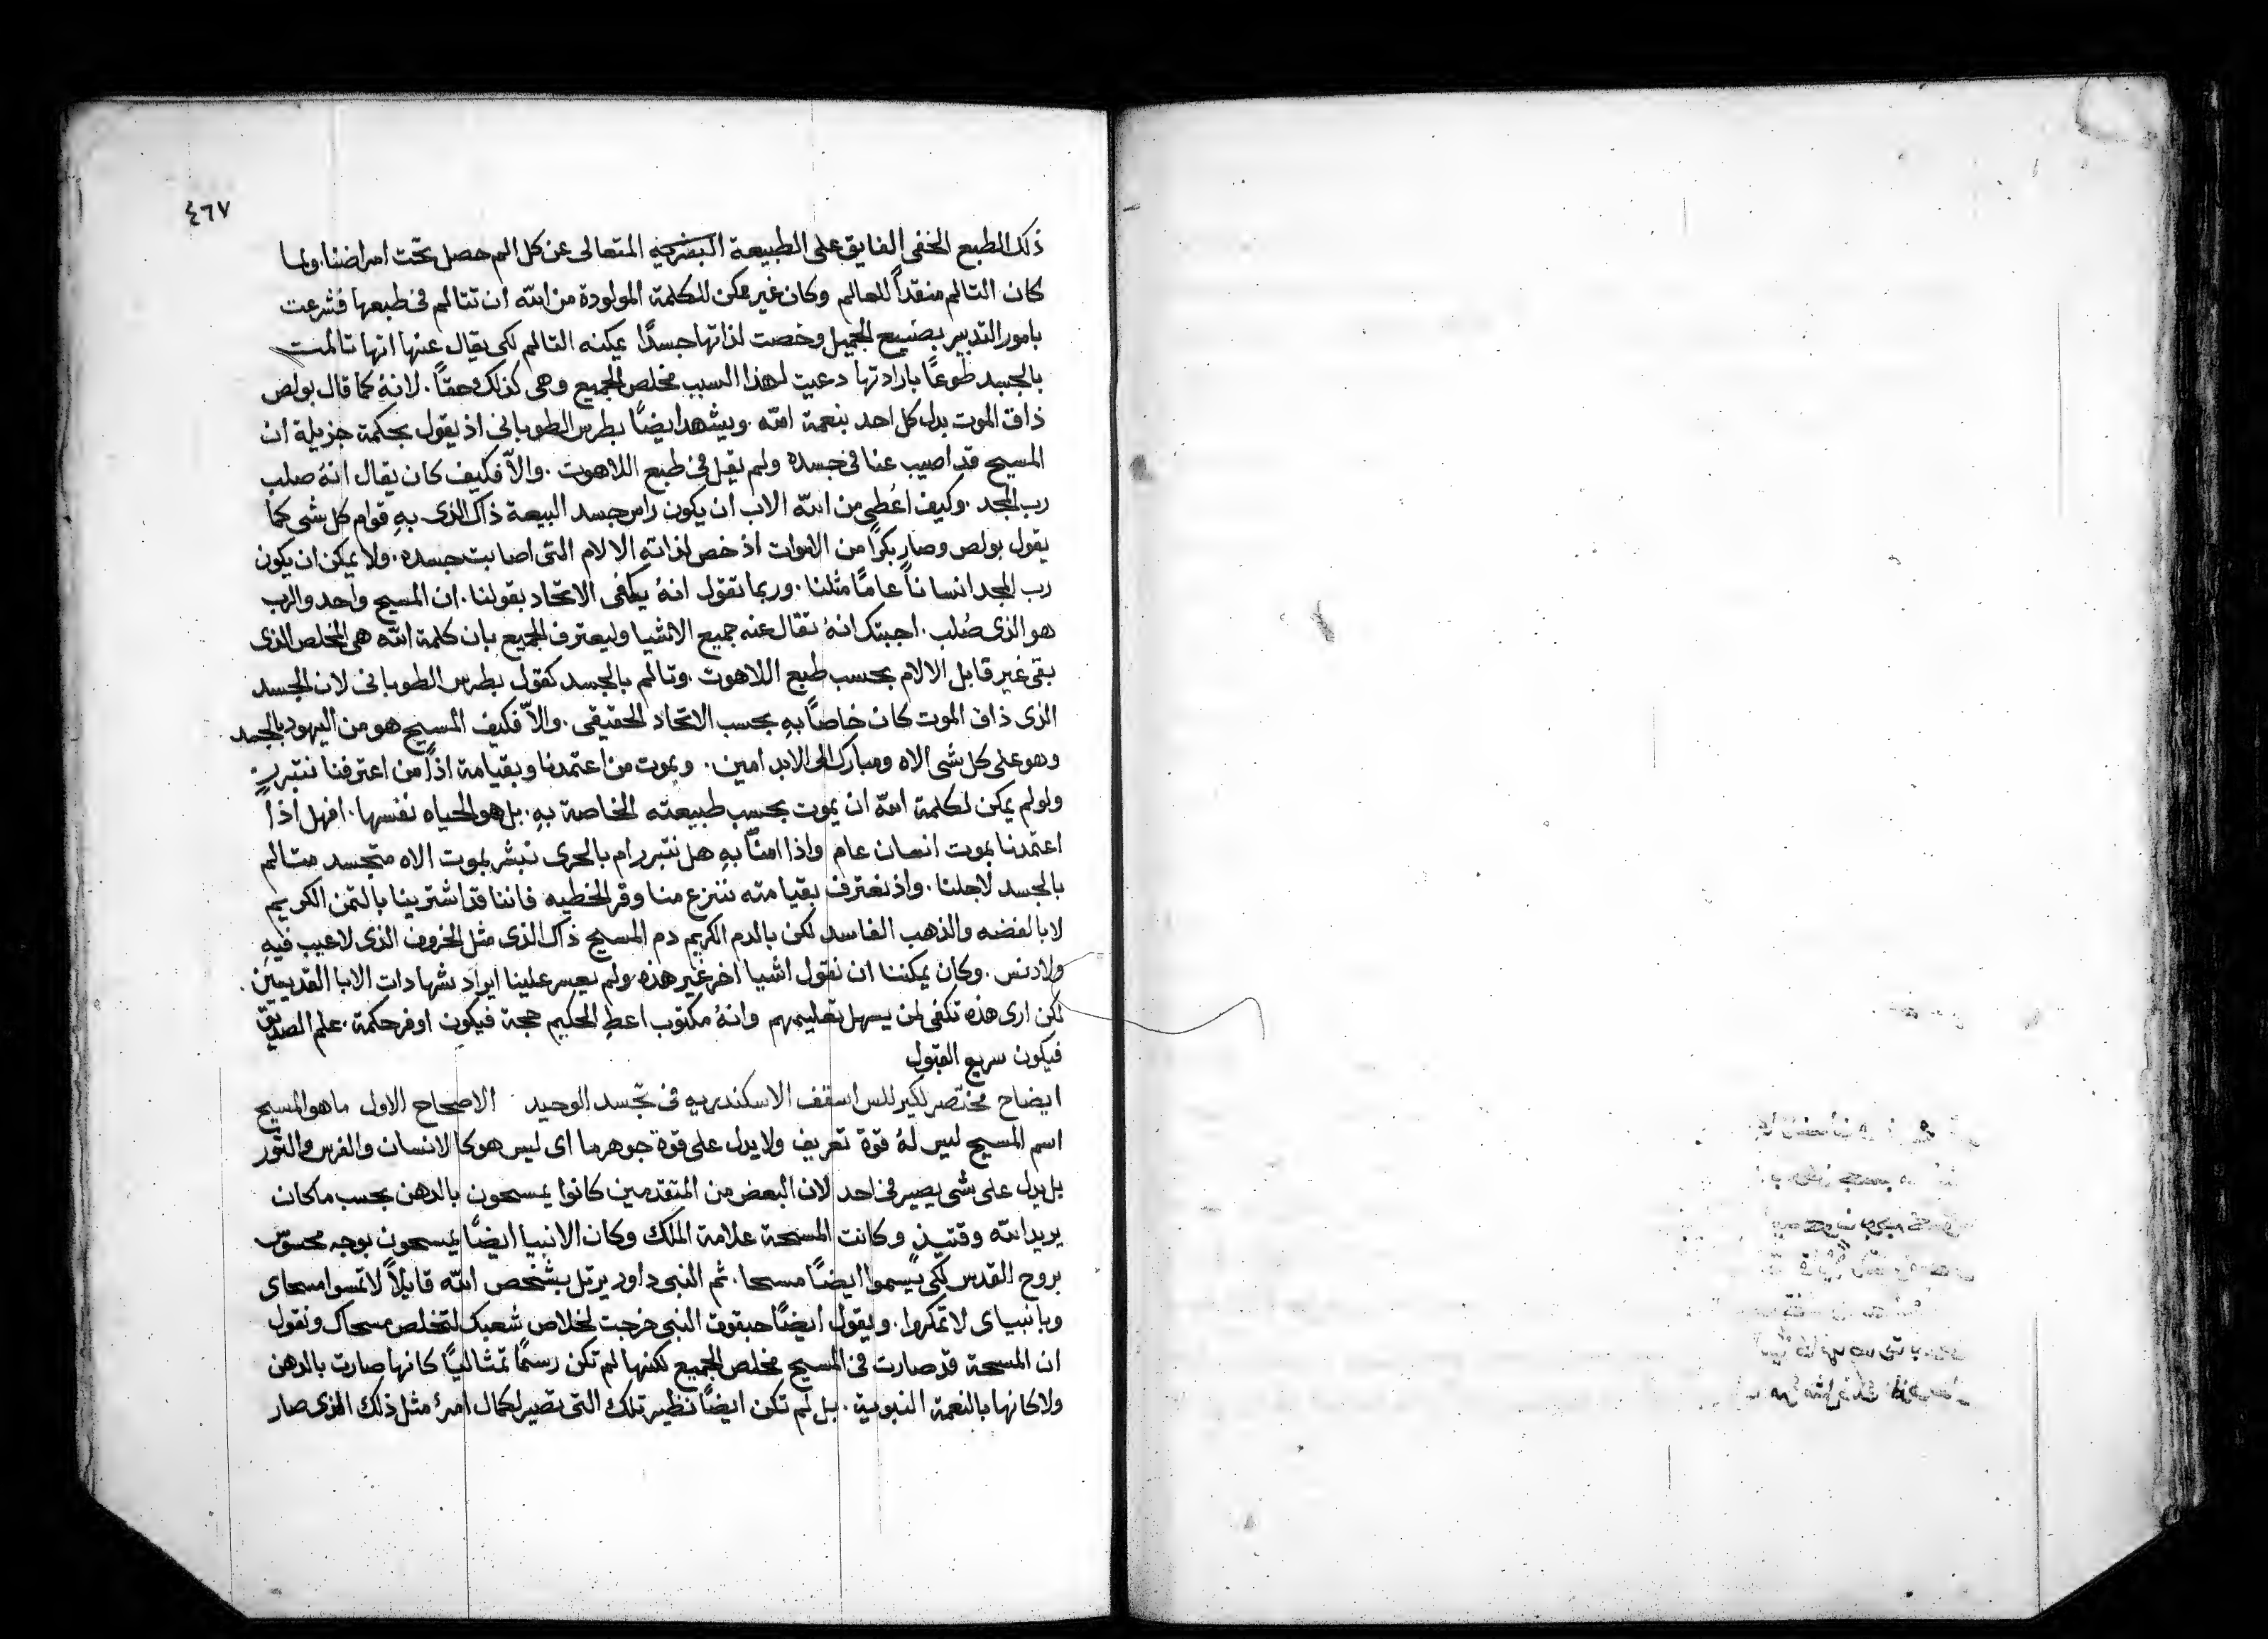 ٤٦٧
ذلك الطبع الخفى الفايق على الطبيعة البشريه المتعالى عن كل الم حصل تحت امراضنا. ولما
كان التالم منقداً للعالم وكان غير ممكن للكلمة المولودة من الله ان تتالم فى طبعها فشرعت
بامور التدبير بصنيع الجميل وخصت لذاتها جسدًا يمكنه التالم لكى يقال عنها انها تالمت
بالجسد طوعًا بارادتها دعيت لهذا السبب مخلص الجميع وهى كذلك حقًا. لانهُ كما قال بولص
ذاق الموت بدل كل احد بنعمة الله. ويشهد ايضًا بطرس الطوبانى اذ يقول بحكمة جزيلة ان
المسيح قد اصيب عنا فى جسده ولم يقل فى طبع اللاهوت. والّا فكيف كان يقال انهُ صلب
رب المجد. وكيف اعُطى من الله الاب ان يكون راس جسد البيعة ذاك الذى بهِ قوام كل شى كما
يقول بولص وصار بكرًا من الاموات اذ خص لذاتهِ الالام التى اصابت جسده. ولا يمكن ان يكون
رب المجد انسانًا عامًا مثلنا. وربما تقول انهُ يكفى الاتحاد بقولنا. ان المسيح واحد والرب
هو الذى صُلب. اجبتك انهُ تقال عنه جميع الاشيا وليعترف الجميع بان كلمة الله هى المخلص الذى
بقى غير قابل الالام بحسب طبع اللاهوت. وتالم بالجسد كقول بطرس الطوبانى لان الجسد
الذى ذاق الموت كان خاصًا بهِ بحسب الاتحاد الحقيقى. والاّ فكيف المسيح هو من اليهود بالجسد
وهو على كل شى الاه ومبارك الى الابد امين. وبموت من اعتمدنا وبقيامة اذًا من اعترفنا نتبرر
ولو لم يمكن لكلمة الله ان يموت بحسب طبيعته الخاصة بهِ. بل هو الحياه نفسها. افهل اذًا
اعتمدنا بموت انسان عام واذا امنّا بهِ هل نتبرر ام بالحرى نبشر بموت الاه متجسد متالم
بالجسد لاجلنا. واذ نعترف بقيامته ننزع منا وقر الخطيه فاننا قد اشترينا بالثمن الكريم
لا بالفضه والذهب الفاسد لكن بالدم الكريم دم المسيح ذاك الذى مثل الخروف الذى لا عيب فيهِ
ولا دنس. وكان يمكننا ان نقول اشيا اخر غير هذه ولم يعسر علينا ايراد شهادات الابا القديسين.
لكن ارى هذه تكفى لمن يسهل تعليمهم وانهُ مكتوب اعطِ الحكيم حجة فيكون اوفر حكمة. علم الصديق
فيكون سريع القبول
ايضاح مختصر لكيرللس اسقف الاسكندريه فى تجسد الوحيد الاصحاح الاول ما هو المسيح
اسم المسيح ليس لهُ قوة تعريف ولا يدل على قوة جوهر ما اى ليس هو كالانسان والفرس والثور
بل يدل على شى يصير فى احد لان البعض من المتقدمين كانوا يمسحون بالدهن بحسب ما كان
يريد الله وقتيذٍ وكانت المسحة علامة الملك وكان الانبيا ايضًا يمسحون بوجه محسوس
بروح القدس لكى يسموا ايضًا مسحا. ثم النبى داود يرتل بشخص الله قايلًا لا تمسوا مسحاى
وبانبياى لا تمكروا. ويقول ايضًا حبقوق النبى خرجت لخلاص شعبك لتخلص مسحاك ونقول
ان المسحة قد صارت فى المسيح مخلص الجميع لكنها لم تكن رسمًا تمثاليًا كانها صارت بالدهن
ولا كانها بالنعمة النبوية. بل لم تكن ايضًا نظير تلك التى تصير لكمال امرُ مثل ذلك الذى صار